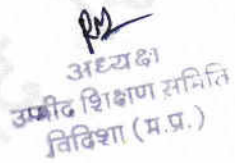 अध्यक्ष
उम्मीद शिक्षण समिति
विदिशा (म.प्र.)